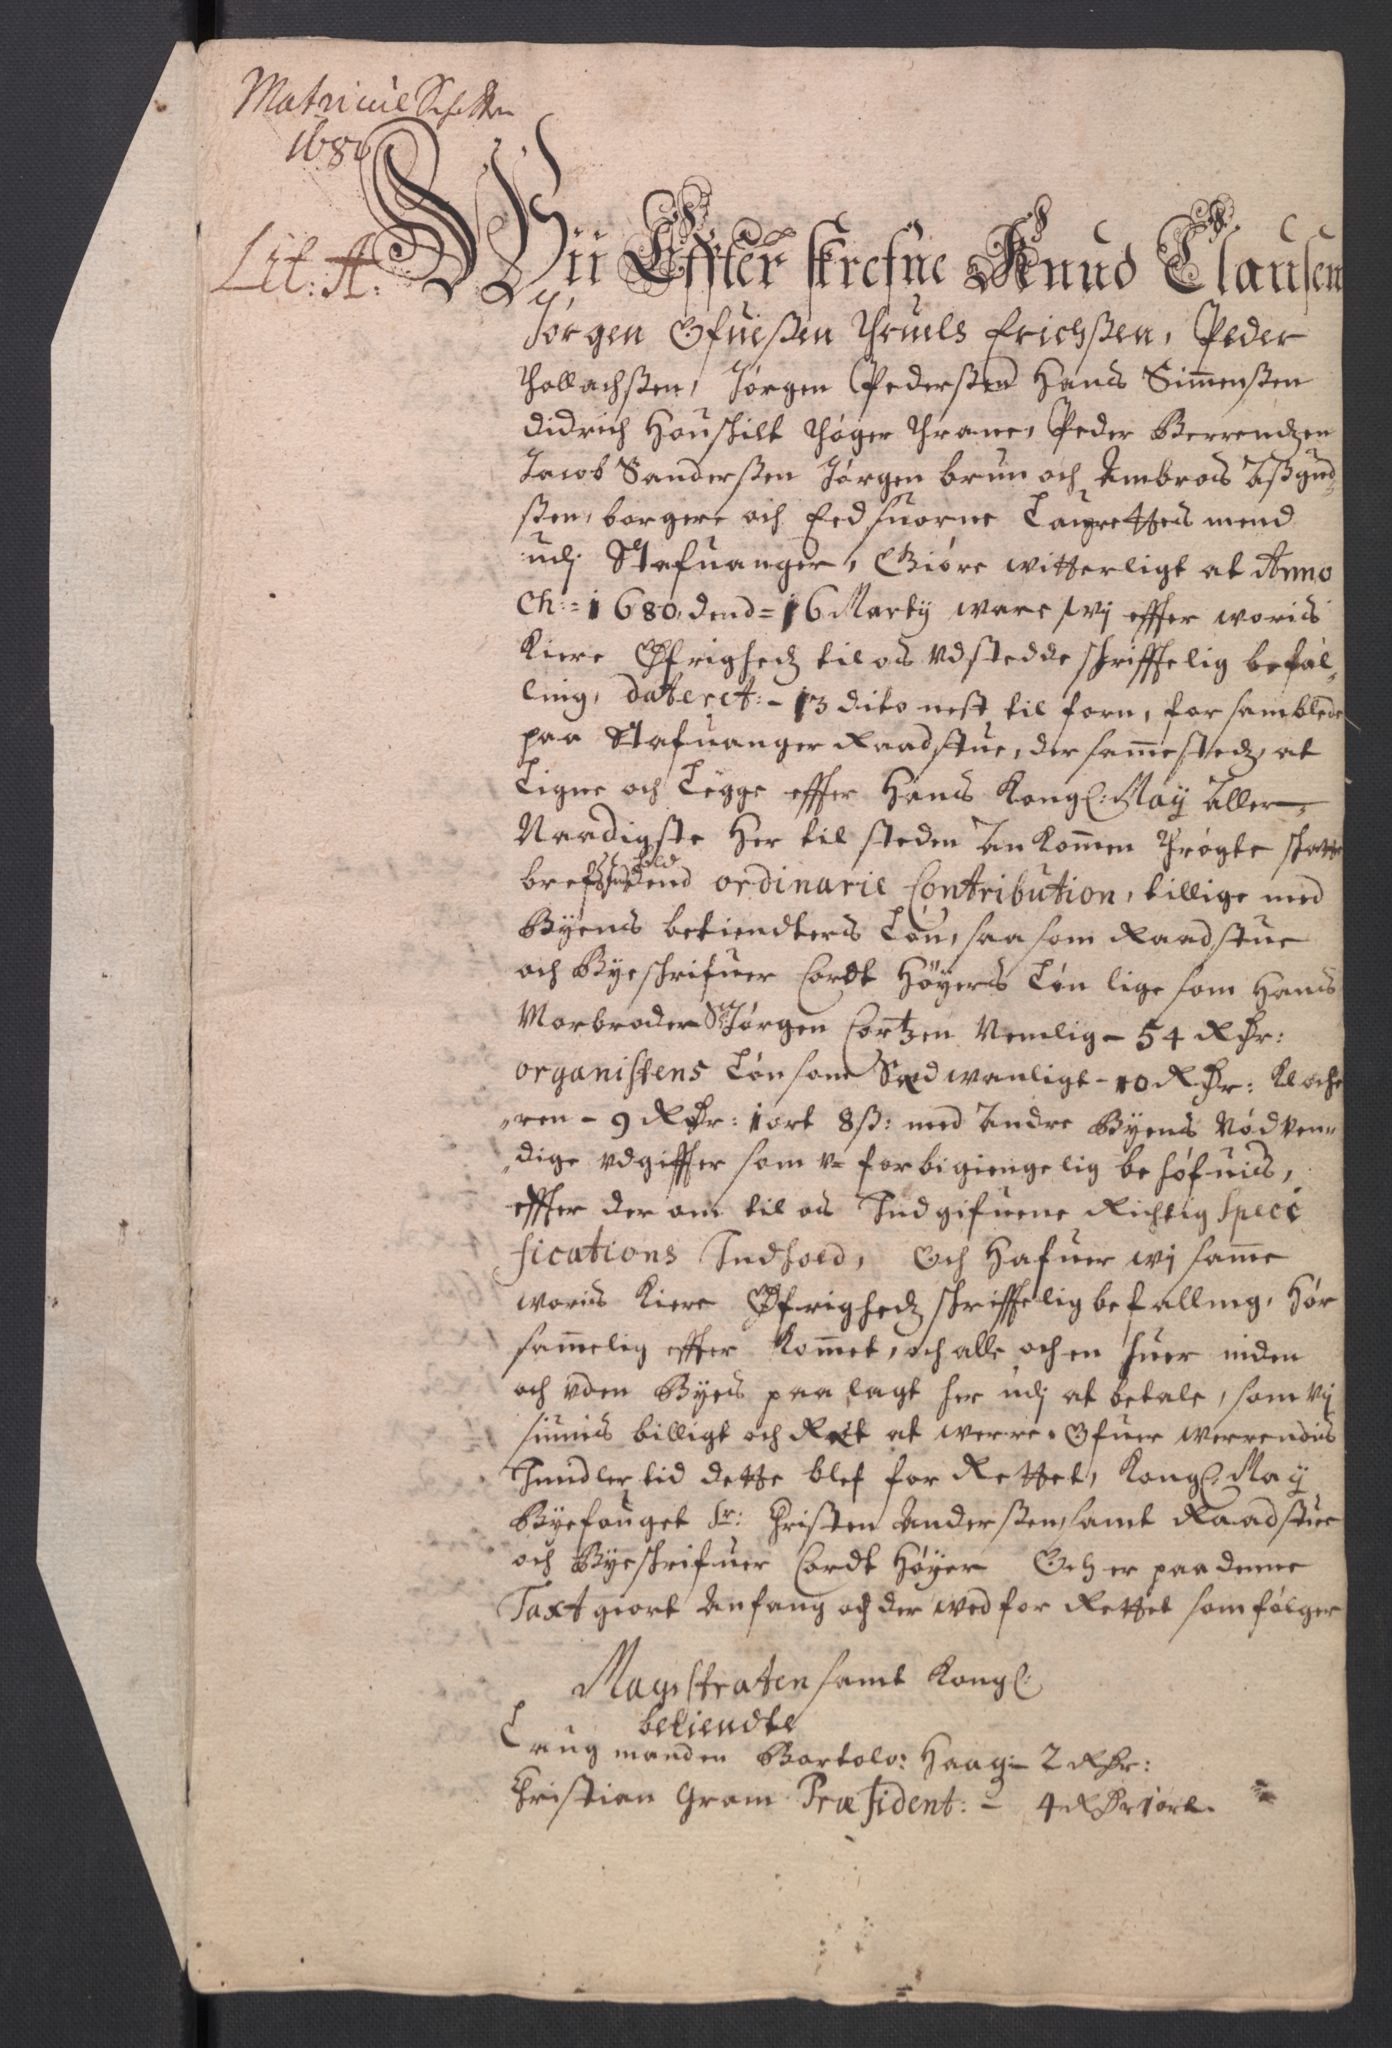 Matricul Schatten
1680
Lit: A:
Wii Effter skrefne Knud Clausen
Jørgen Ofueßen Thruels Erichßen, Peder
Thollachßen, Jørgen Pederßen Hans Simenßen
Didrich Houschilt Thøger Thrane, Peder Berrendzen
Jacob Sanderßen Jørgen brun och Ambros Aßgud-
ßen, borgere och Eedsuorne Laugrettes mend
udj Stafuanger, Giøre witterligt at Anno
Ch:= 1680, dend= 16 Marty ware wj effter woris
Kiere Øfrighedz til os Vdstedde schrifftelig befal-
ling, dateret:- 13 dito nest til forn, forsamblede
paa Stafuanger Raadstue, der samestedz, at
Ligne och Legge effter Hans Kongl: May Aller-
Naadigste Her til steden Ankomen Thrøgte schatte
brefs Indhold dend ordinarie Contribution, tillige med
Byens betiendters Løn, saa som Raadstue
och Byeschrifuer Cordt Høyers Løn lige som Hans
Morbroder Sl: Jørgen Cortzen Nemlig - 54 Rdr:
organistens Løn som Sædwanligt - 10 Rdr: Klocke
ren - 9 Rdr: 1 ort 8 ß: med Andre Byens Nødven-
dige Vdgiffter som v= forbigiengelig behøfuis,
effter der om til os Indgifuene Richtig Speci
fications Indhold, Och Hafuer wj same
woris Kiere Øfrighedz schrifftelig befalling, Hør
samelig effter Komet, och alle och en huer inden
och vden Byes paalagt her udj at betale, som vij
siunis billigt och Ræt at werre. Ofuer werrendis
Imidler tid dette blef for Rettet, Kongl. May
Byefouget Sr: Christen Anderßen, samt Raadstue
och Byeschrifuer Cordt Høyer Och er paa denne
Taxt giort Anfang och der wed for Rettet som følger
Magistraten samt Kongl:
betiendte
Laug manden Bartolo: Haag:- 2 Rdr:
Christian Gram Præsident: - 4 Rdr 1 ort.